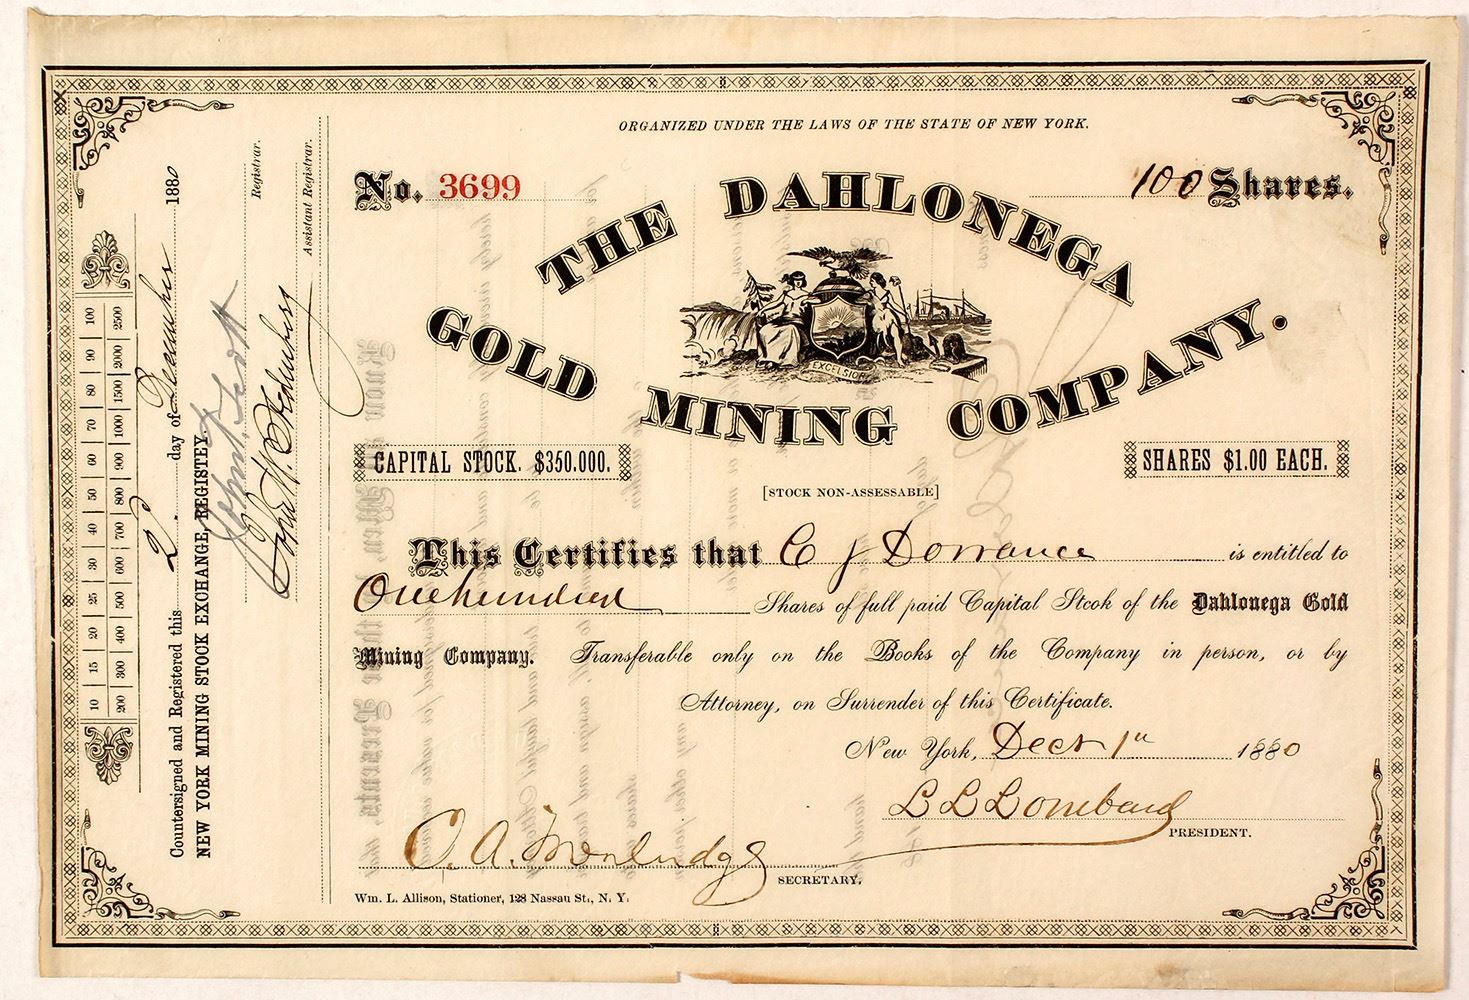 ORGANIZED UNDER THE LAWS OF THE STATE OF NEW YORK.
No. 3699
100 Shares.
THE DAHLONEGA
GOLD MINING COMPANY.
EXCELSIOR
CAPITAL STOCK. $350.000.
SHARES $1.00 EACH.
[STOCK NON-ASSESSABLE]
This Certifies that C J Dorrance is entitled to
One hundred Shares of full paid Capital Stcok of the Dahlonega Gold
Mining Company. Transferable only on the Books of the Company in person, or by
Attorney, on Surrender of this Certificate.
New York, Decr 1st 1880
L L Lombard
PRESIDENT.
O. A.
SECRETARY.
Wm. L. Allison, Stationer, 128 Nassau St., N. Y.
10 15 20 25 30 40 50 60 70 80 90 100
200 300 400 500 600 700 800 900 1000 1500 2000 2500
Countersigned and Registered this 2d day of December 1880
NEW YORK MINING STOCK EXCHANGE, REGISTEY,
Registrar.
Assistant Registrar.